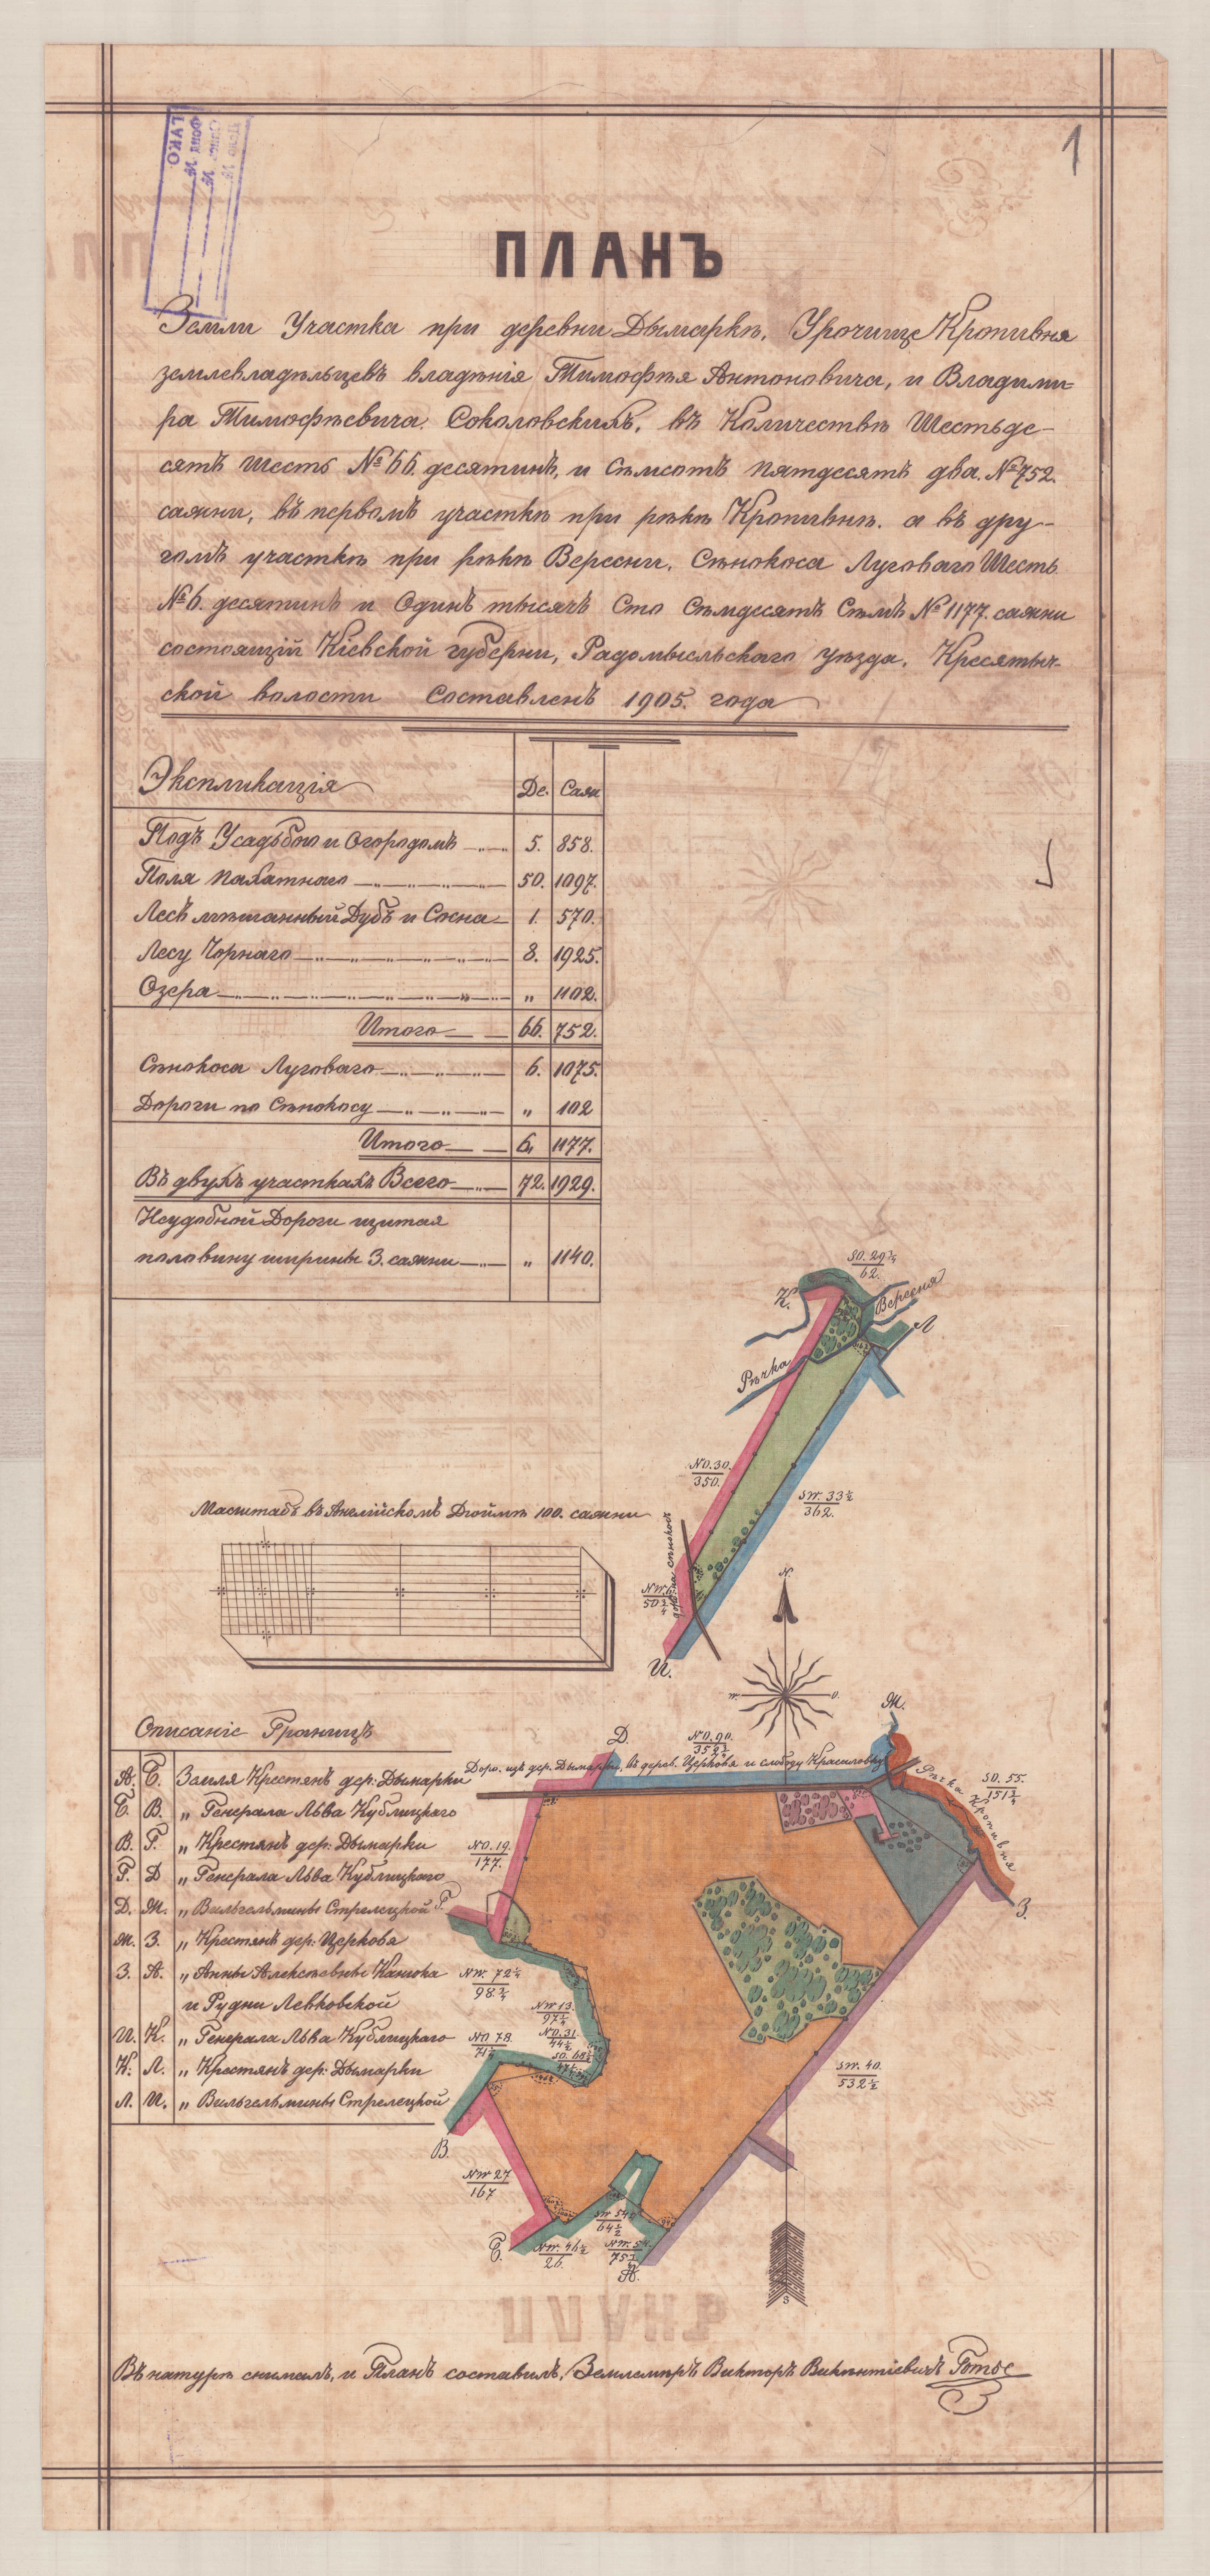 1
ПЛАНЪ
Земли Участка при деревни Дымаркѣ, Урочище Кропивня
землевладѣльцевъ владѣнія Тимофѣя Антоновича, и Владими=
ра Тимофѣевича. Соколовскихъ, въ Количествѣ Шестьде-
сятъ шесть №66. десятинъ, и Сѣмсотъ пятдесятъ два. №752.
сажни, въ первомъ участкѣ при рѣкѣ Кропивнѣ. а въ дру-
гомъ участкѣ при рѣкѣ Вересни, Сѣнокоса Луговаго Шесть
№6. десятинъ и Одинъ тысячъ Сто Сѣмдесятъ Сѣмъ №1177. сажни
состоящій Кіевской губерни, Радомысльскаго уѣзда, Кресятыч-
ской волости Составленъ 1905. года
Экспликація Де. Саж
Подъ Усадьбою и Огородомъ 5. 858.
Поля пахатнаго 50. 1097.
Лесъ мѣшанный Дубъ и Сосна 1. 570.
Лесу Чорнаго 8. 1925.
Озера „ 1102.
Итого 66. 752.
Сѣнокоса Луговаго 6. 1075.
Дороги по Сѣнокосу „ 102
Итого 6. 1177.
Въ двухъ участкахъ Всего 72. 1929.
Неудобной Дороги щитая
половину ширины 3. сажни „ 1140.
SO. 29 3/4
62.
К.
Вересня
Л
Рѣчка
NO. 30.
350.
SW. 33 1/2
362.
Масштабъ въ Английскомъ Дюймѣ 100. сажни
И.
N.
W. O.
Описаніе Границъ
А. Б. Земля Крестянъ дер: Дымарки
Б. В. „ Генерала Льва Кублицкаго
В. Г. „ Крестянъ дер: Дымарки
Г. Д „ Генерала Льва Кублицкаго
Д. Ж. „ Вильгельмины Стрелецкой
Ж. З. „ Крестянъ дер: Церкова
З. А. „ Анны Алексѣевны Канюка
и Рудни Левковской
И. К. „ Генерала Льва Кублицкаго
К. Л. „ Крестянъ дер: Дымарки
Л. И. „ Вильгельмины Стрелецкой
Д.
NO. 90.
Ж.
Доро. изъ дер. Дымарки, въ дерев. Церковя и слободу Красиловку
Рѣчка Кропивня
SO. 55.
151 3/4
З.
NO. 19.
177.
Г.
NW. 72 1/4
98 3/4
NW 13.
NO. 31.
NO 78.
SW. 40.
532 1/2
В.
NW 27
167
Б.
NW. 46 1/2
26.
64 1/2
А.
Въ натурѣ снималъ, и Планъ составилъ, Землемѣръ Викторъ Викентіевичъ Готье